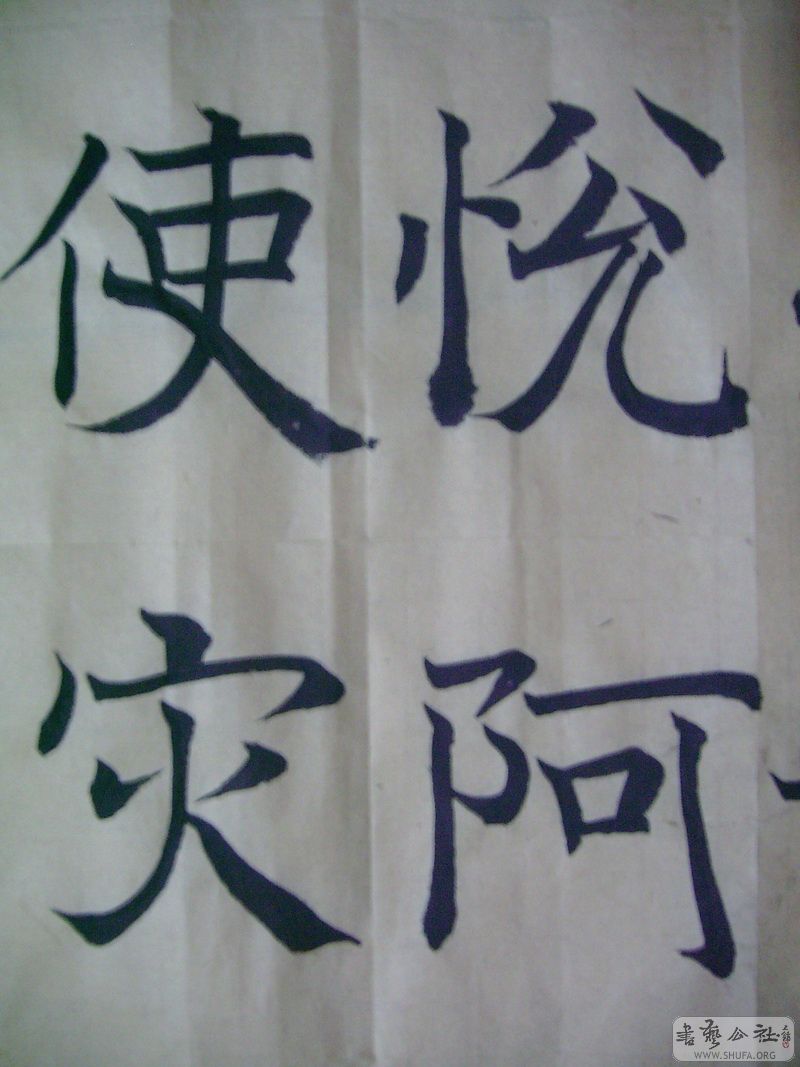 恱阿
使灾
書藝公社
WWW.SHUFA.ORG